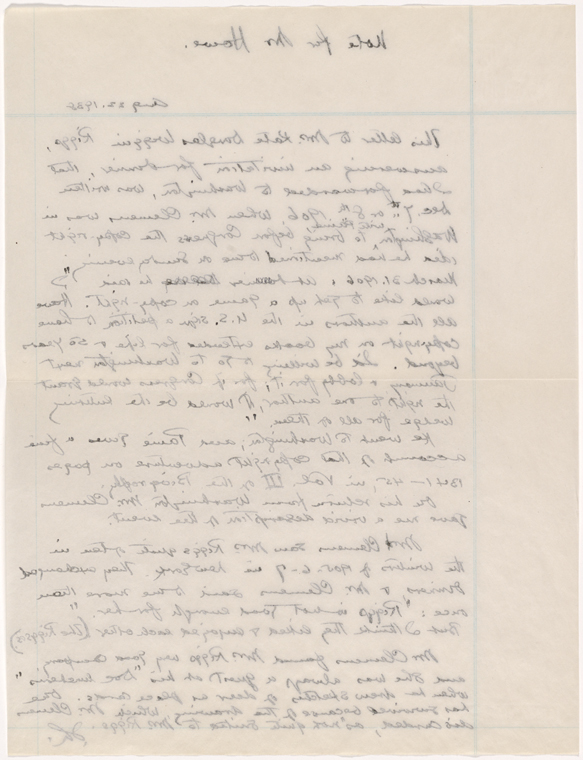 Note for Mr Howe.
Aug 22. 1938
This letter to Mrs. Kate Douglas Wiggin Riggs,
answering an invitation for dinner, that
I had forwarded to Washington, was written
Dec 7th or 8th 1906 when Mr Clemens was in
Washington, with Paine, to bring before Congress the copyright
idea he had mentioned to me on Sunday evening
March 31. 1906 & at he said he
would like to get up a game on copyright. Have
all the authors in the U.S. sign a petition to have
copyright on my books extended for life & 50 years
beyond. I'd be willing to go to Washington next
January & lobby for it, for if Congress would grant
the right to one author, it would be the entering
wedge for all of them."
He went to Washington, and Paine gives a fine
account of that copyright adventure on pages
1341-45, in Vol. III of the Biography.
On his return from Washington Mr. Clemens
gave me a vivid description of the event.
Mr Clemens saw Mrs Riggs quite often in
the winters of 1905-6-7 in New York. They exchanged
dinners, & Mr Clemens said to me more than
once: "Riggs is not good enough for her."
But I think they liked & enjoyed each other (the Riggs's)
Mr Clemens found Mrs Riggs very good company
and she was always a guest at his "Doe luncheons"
when he drew sketches of deer as place cards. One
has survived because of the drawing which Mr Clemens
discarded, as not quite suited to Mrs Riggs.